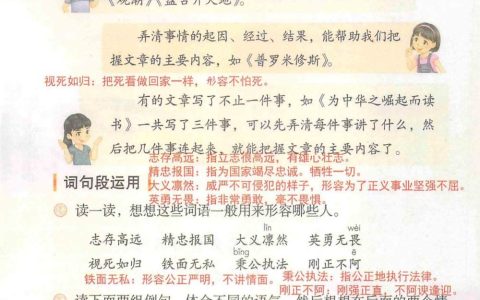 《观潮》《盘古开天地》。
弄清事情的起因、经过、结果,能帮助我们把
握文章的主要内容,如《普罗米修斯》。
视死如归:把死看做回家一样,形容不怕死。
有的文章写了不止一件事,如《为中华之崛起而读
书》一共写了三件事,可以先弄清每件事讲了什么,然
后把几件事连起来,就能把握文章的主要内容了。
志存高远:指立志很高远,有雄心壮志。
精忠报国:指为国家竭尽忠诚。牺牲一切。
词句段运用
大义凛然:威严不可侵犯的样子,形容为了正义事业坚强不屈。
英勇无畏:指非常勇敢,毫不畏惧。
读一读,想想这些词语一般用来形容哪些人。
lǐn wèi
志存高远 精忠报国 大义凛然 英勇无畏
bǐng ē
视死如归 铁面无私 秉公执法 刚正不阿
铁面无私:形容公正严明,不讲情面。
秉公执法:指公正地执行法律。
刚正不阿:刚强正直,不阿谀逢迎。